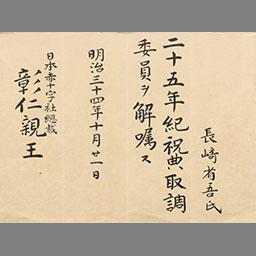 長崎省吾氏
二十五年紀祝典取調
委員ヲ解嘱ス
明治三十四年十月廿一日
日本赤十字社総裁
彰仁親王